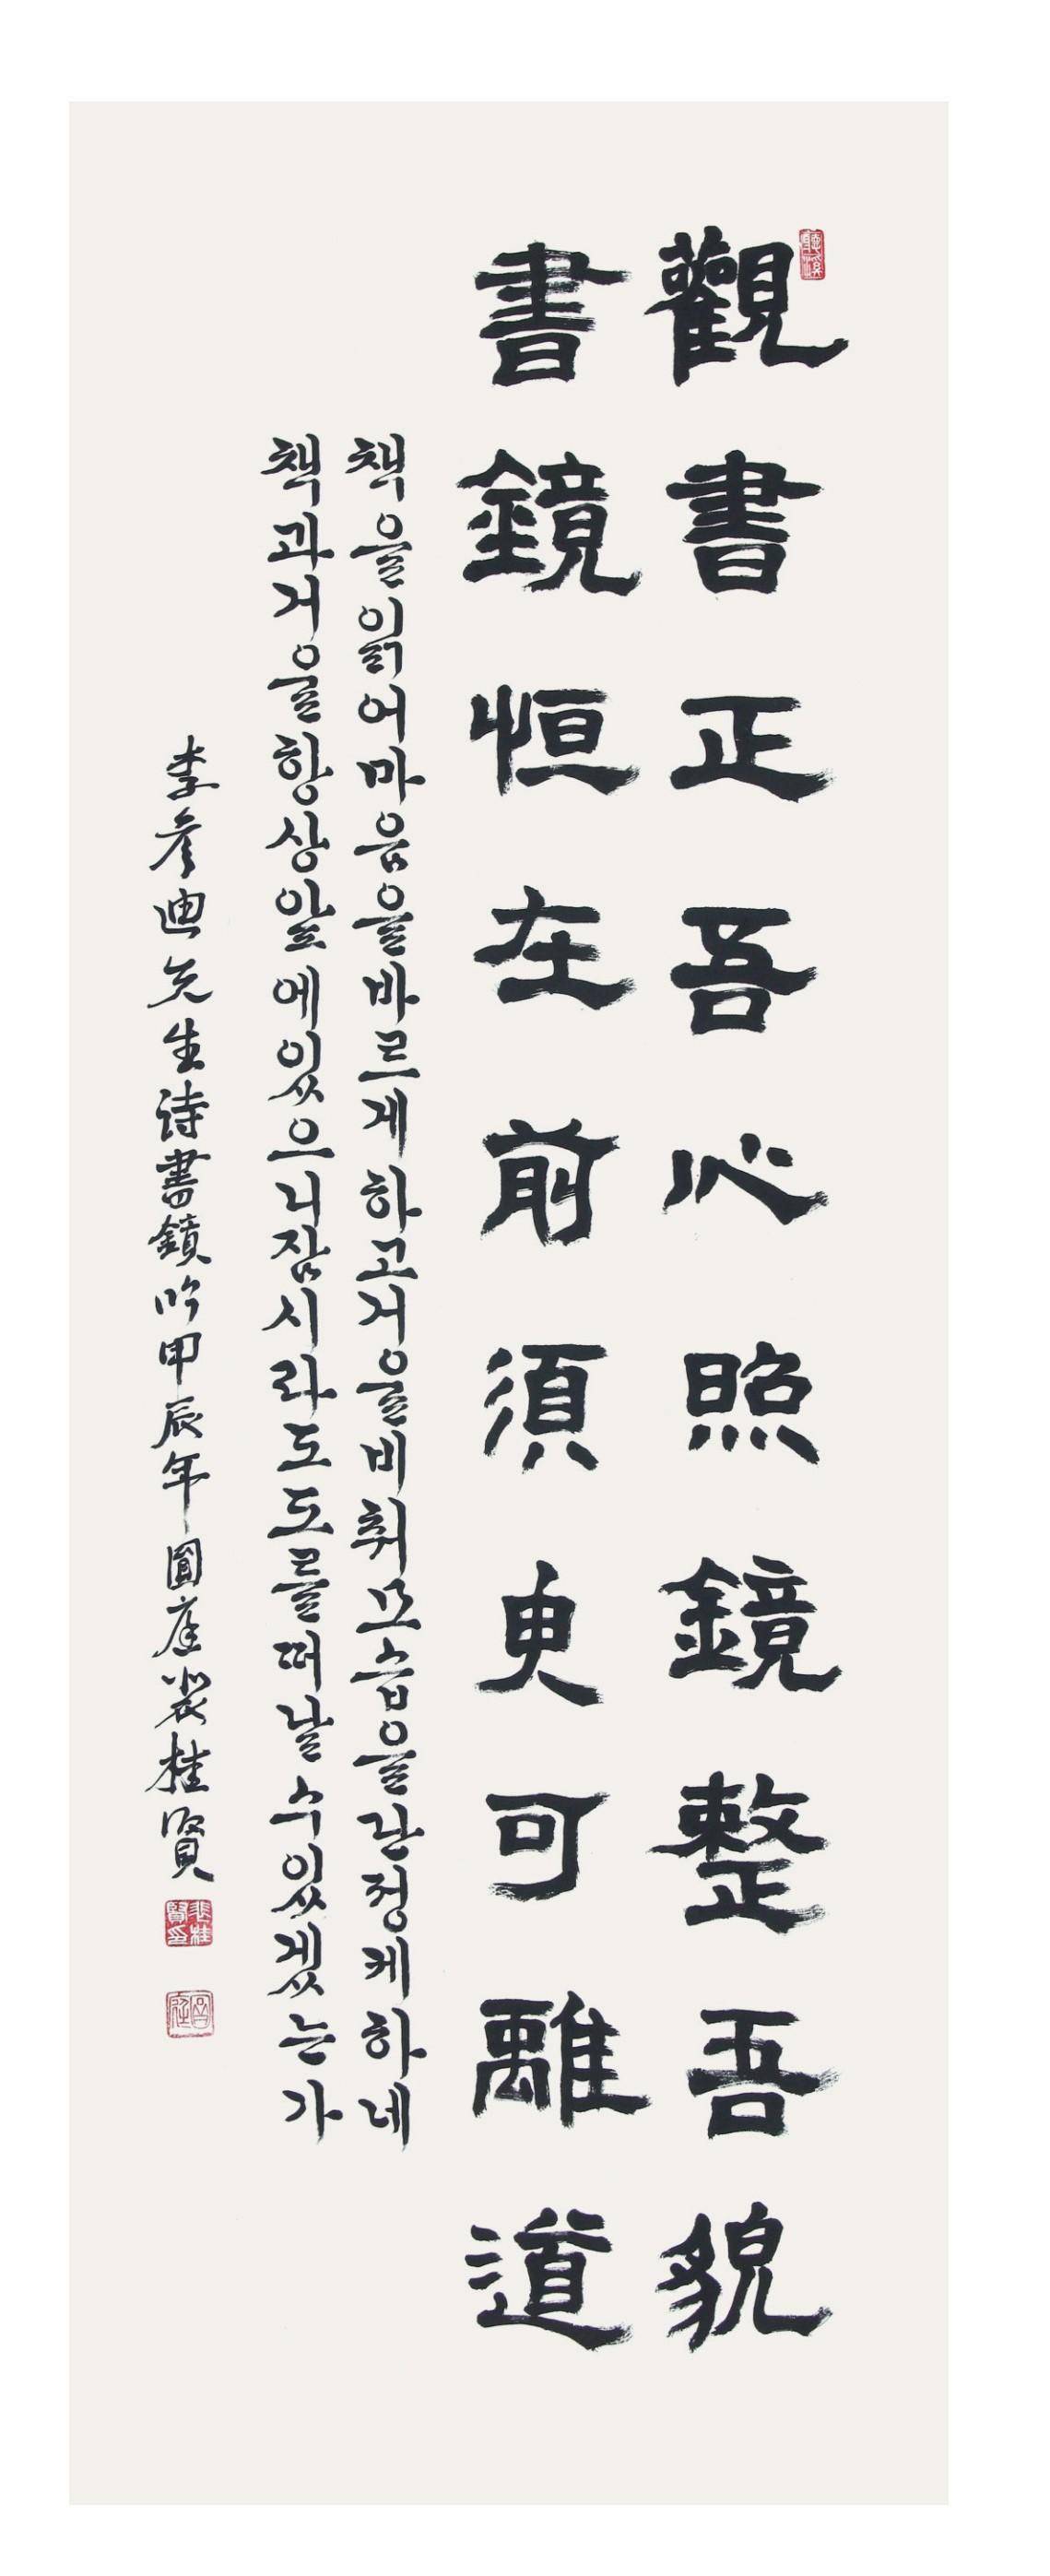 觀書正吾心照鏡整吾貌
書鏡恒在前須臾可離道
책을읽어마음을바르게하고거울을비춰모습을단정케하네
책과거울항상앞에있으니잠시라도도를떠날수있겠는가
李彦迪先生詩書鏡吟甲辰年圓庭裴桂賢
裴桂賢印